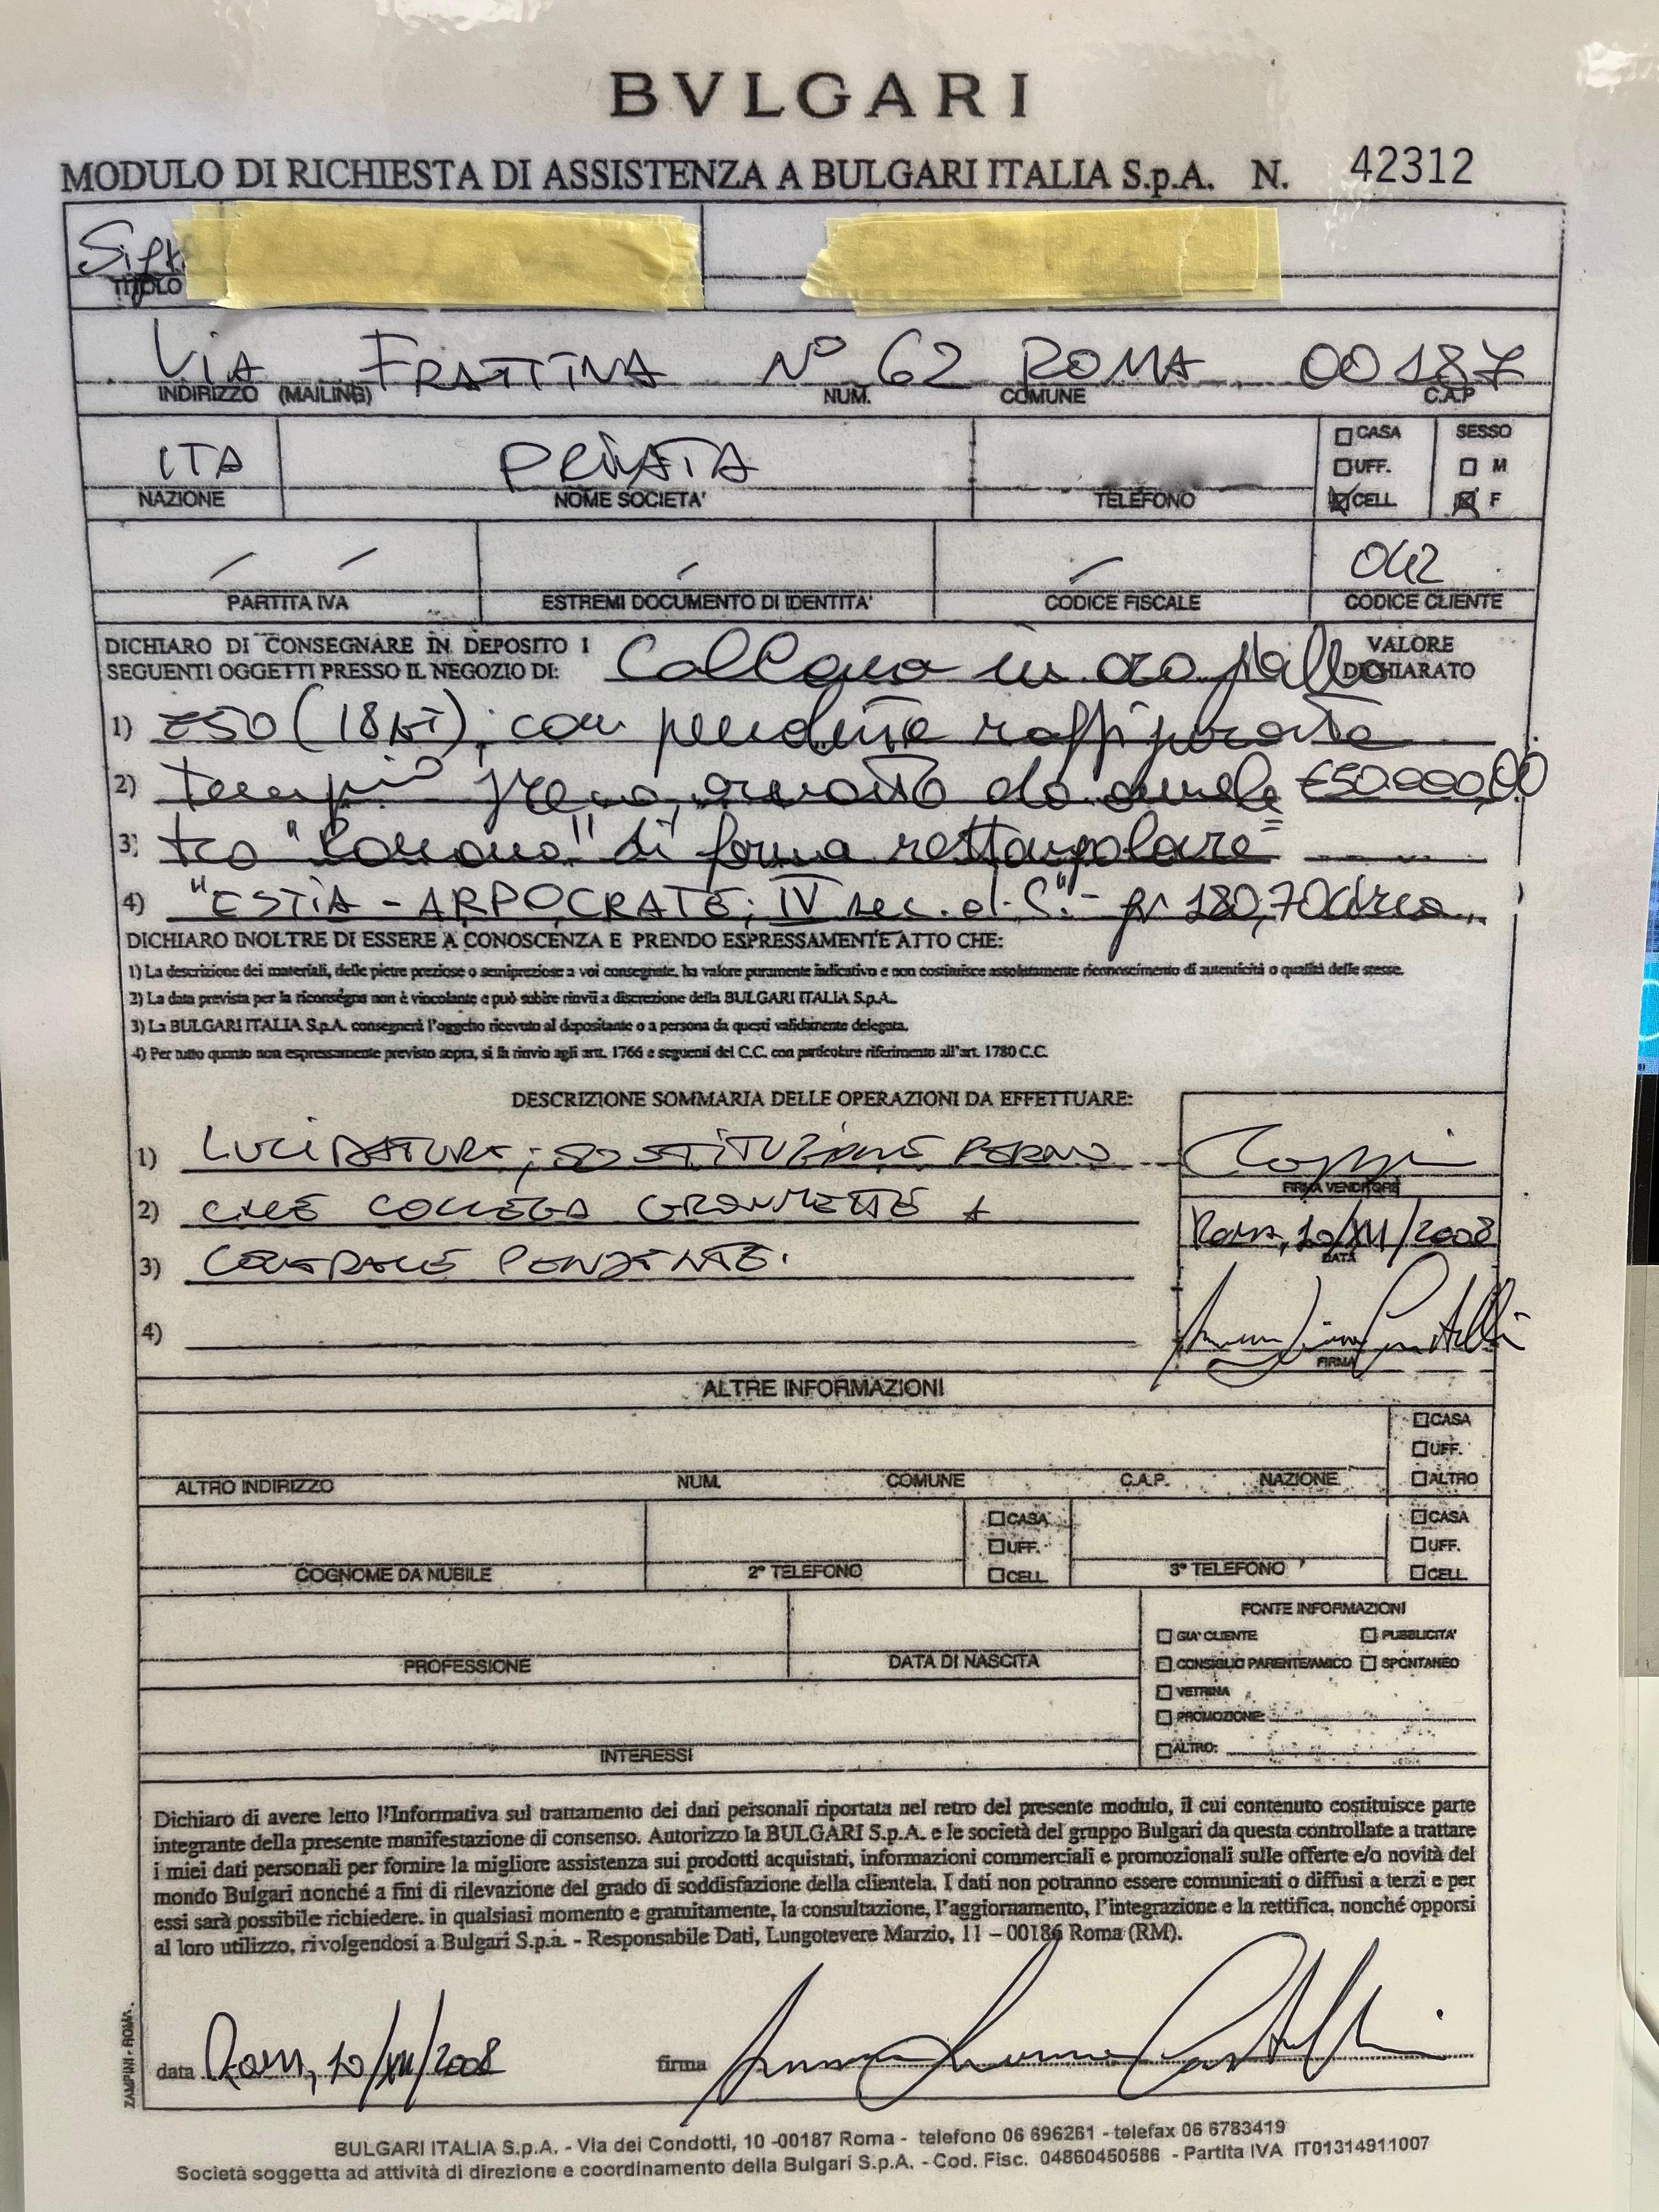 BVLGARI
MODULO DI RICHIESTA DI ASSISTENZA A BULGARI ITALIA S.p.A. N. 42312
TITOLO
VIA FRATTINA N° 62 ROMA 00187
INDIRIZZO (MAILING) NUM. COMUNE C.A.P
ITA PRIVATA
NAZIONE NOME SOCIETA' TELEFONO
CASA
UFF.
CELL
SESSO
M
F
042
PARTITA IVA ESTREMI DOCUMENTO DI IDENTITA' CODICE FISCALE CODICE CLIENTE
DICHIARO DI CONSEGNARE IN DEPOSITO I
SEGUENTI OGGETTI PRESSO IL NEGOZIO DI: Collana in oro giallo
VALORE
DICHIARATO
1) 750 (18KT), con pendente raffigurante
2) greco, €50.000,00
3) tco "Romano" di forma rettangolare
4) "ESTIA - ARPOCRATE, IV sec. d.C." - gr 180,70 circa
DICHIARO INOLTRE DI ESSERE A CONOSCENZA E PRENDO ESPRESSAMENTE ATTO CHE:
1) La descrizione dei materiali, delle pietre preziose o semipreziose a voi consegnate, ha valore puramente indicativo e non costituisce assolutamente riconoscimento di autenticità o qualità delle stesse.
2) La data prevista per la riconsegna non è vincolante e può subire rinvii a discrezione della BULGARI ITALIA S.p.A.
3) La BULGARI ITALIA S.p.A. consegnerà l'oggetto ricevuto al depositante o a persona da questi validamente delegata.
4) Per tutto quanto non espressamente previsto sopra, si fa rinvio agli artt. 1766 e seguenti del C.C. con particolare riferimento all'art. 1780 C.C.
DESCRIZIONE SOMMARIA DELLE OPERAZIONI DA EFFETTUARE:
1) LUCIDATURA; SOSTITUZIONE PERNO
2) CHE COLLEGA GROUMETTE A
3) CENTRALE PENDENTE.
4)
FIRMA VENDITORE
Roma, 10/XII/2008
DATA
FIRMA
ALTRE INFORMAZIONI
CASA
UFF.
ALTRO
ALTRO INDIRIZZO NUM. COMUNE C.A.P. NAZIONE
CASA
UFF.
CELL
CASA
UFF.
CELL
COGNOME DA NUBILE 2° TELEFONO 3° TELEFONO
FONTE INFORMAZIONI
GIA' CLIENTE PUBBLICITA'
CONSIGLIO PARENTE/AMICO SPONTANEO
VETRINA
PROMOZIONE:
ALTRO:
PROFESSIONE DATA DI NASCITA
INTERESSI
Dichiaro di avere letto l'Informativa sul trattamento dei dati personali riportata nel retro del presente modulo, il cui contenuto costituisce parte
integrante della presente manifestazione di consenso. Autorizzo la BULGARI S.p.A. e le società del gruppo Bulgari da questa controllate a trattare
i miei dati personali per fornire la migliore assistenza sui prodotti acquistati, informazioni commerciali e promozionali sulle offerte e/o novità del
mondo Bulgari nonché a fini di rilevazione del grado di soddisfazione della clientela. I dati non potranno essere comunicati o diffusi a terzi e per
essi sarà possibile richiedere, in qualsiasi momento e gratuitamente, la consultazione, l'aggiornamento, l'integrazione e la rettifica, nonché opporsi
al loro utilizzo, rivolgendosi a Bulgari S.p.a. - Responsabile Dati, Lungotevere Marzio, 11 – 00186 Roma (RM).
data Roma, 10/XII/2008 firma
ZAMPINI - ROMA
BULGARI ITALIA S.p.A. - Via dei Condotti, 10 -00187 Roma - telefono 06 696261 - telefax 06 6783419
Società soggetta ad attività di direzione e coordinamento della Bulgari S.p.A. - Cod. Fisc. 04860450586 - Partita IVA IT01314911007